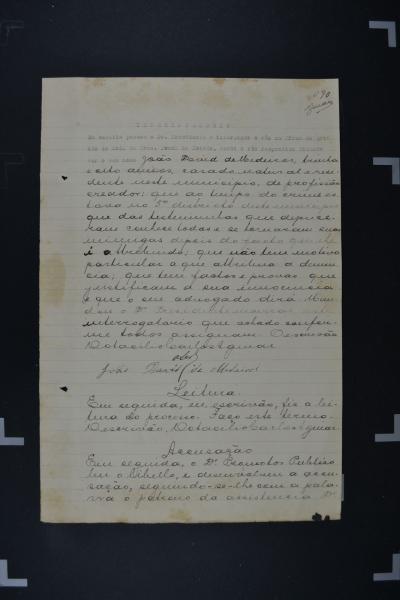 INTERROGATORIO
João David de Medeiros, trinta
e oito annos, casado, natural e resi-
dente neste municipio, de profissão
creador; que ao tempo do crime es-
tava no 5º districto deste municipio
que das testemunhas que depuze-
ram conhece todas e se tornaram suas
inimigas depois do facto que lhe
é attribuido; que não tem motivo
particular a que attribua a denun-
cia; que tem factos e provas que
justificam a sua innocencia
e que o seu advogado dirá. Man-
dou o Dr. Presidente
interrogatorio que achado confor-
me todos assignam. Escrivão
Dotacilio Carlos
João David de Medeiros
Leitura.
Em seguida, eu, escrivão, fiz a lei-
tura do processo. Faço este termo.
Escrivão, Dotacilio Carlos
Accusação
Em seguida, o Dr. Promotor Publico
leu o libello, e desenvolveu a accu-
sação, seguindo-se-lhe com a pala-
vra o patrono da assistencia Dr